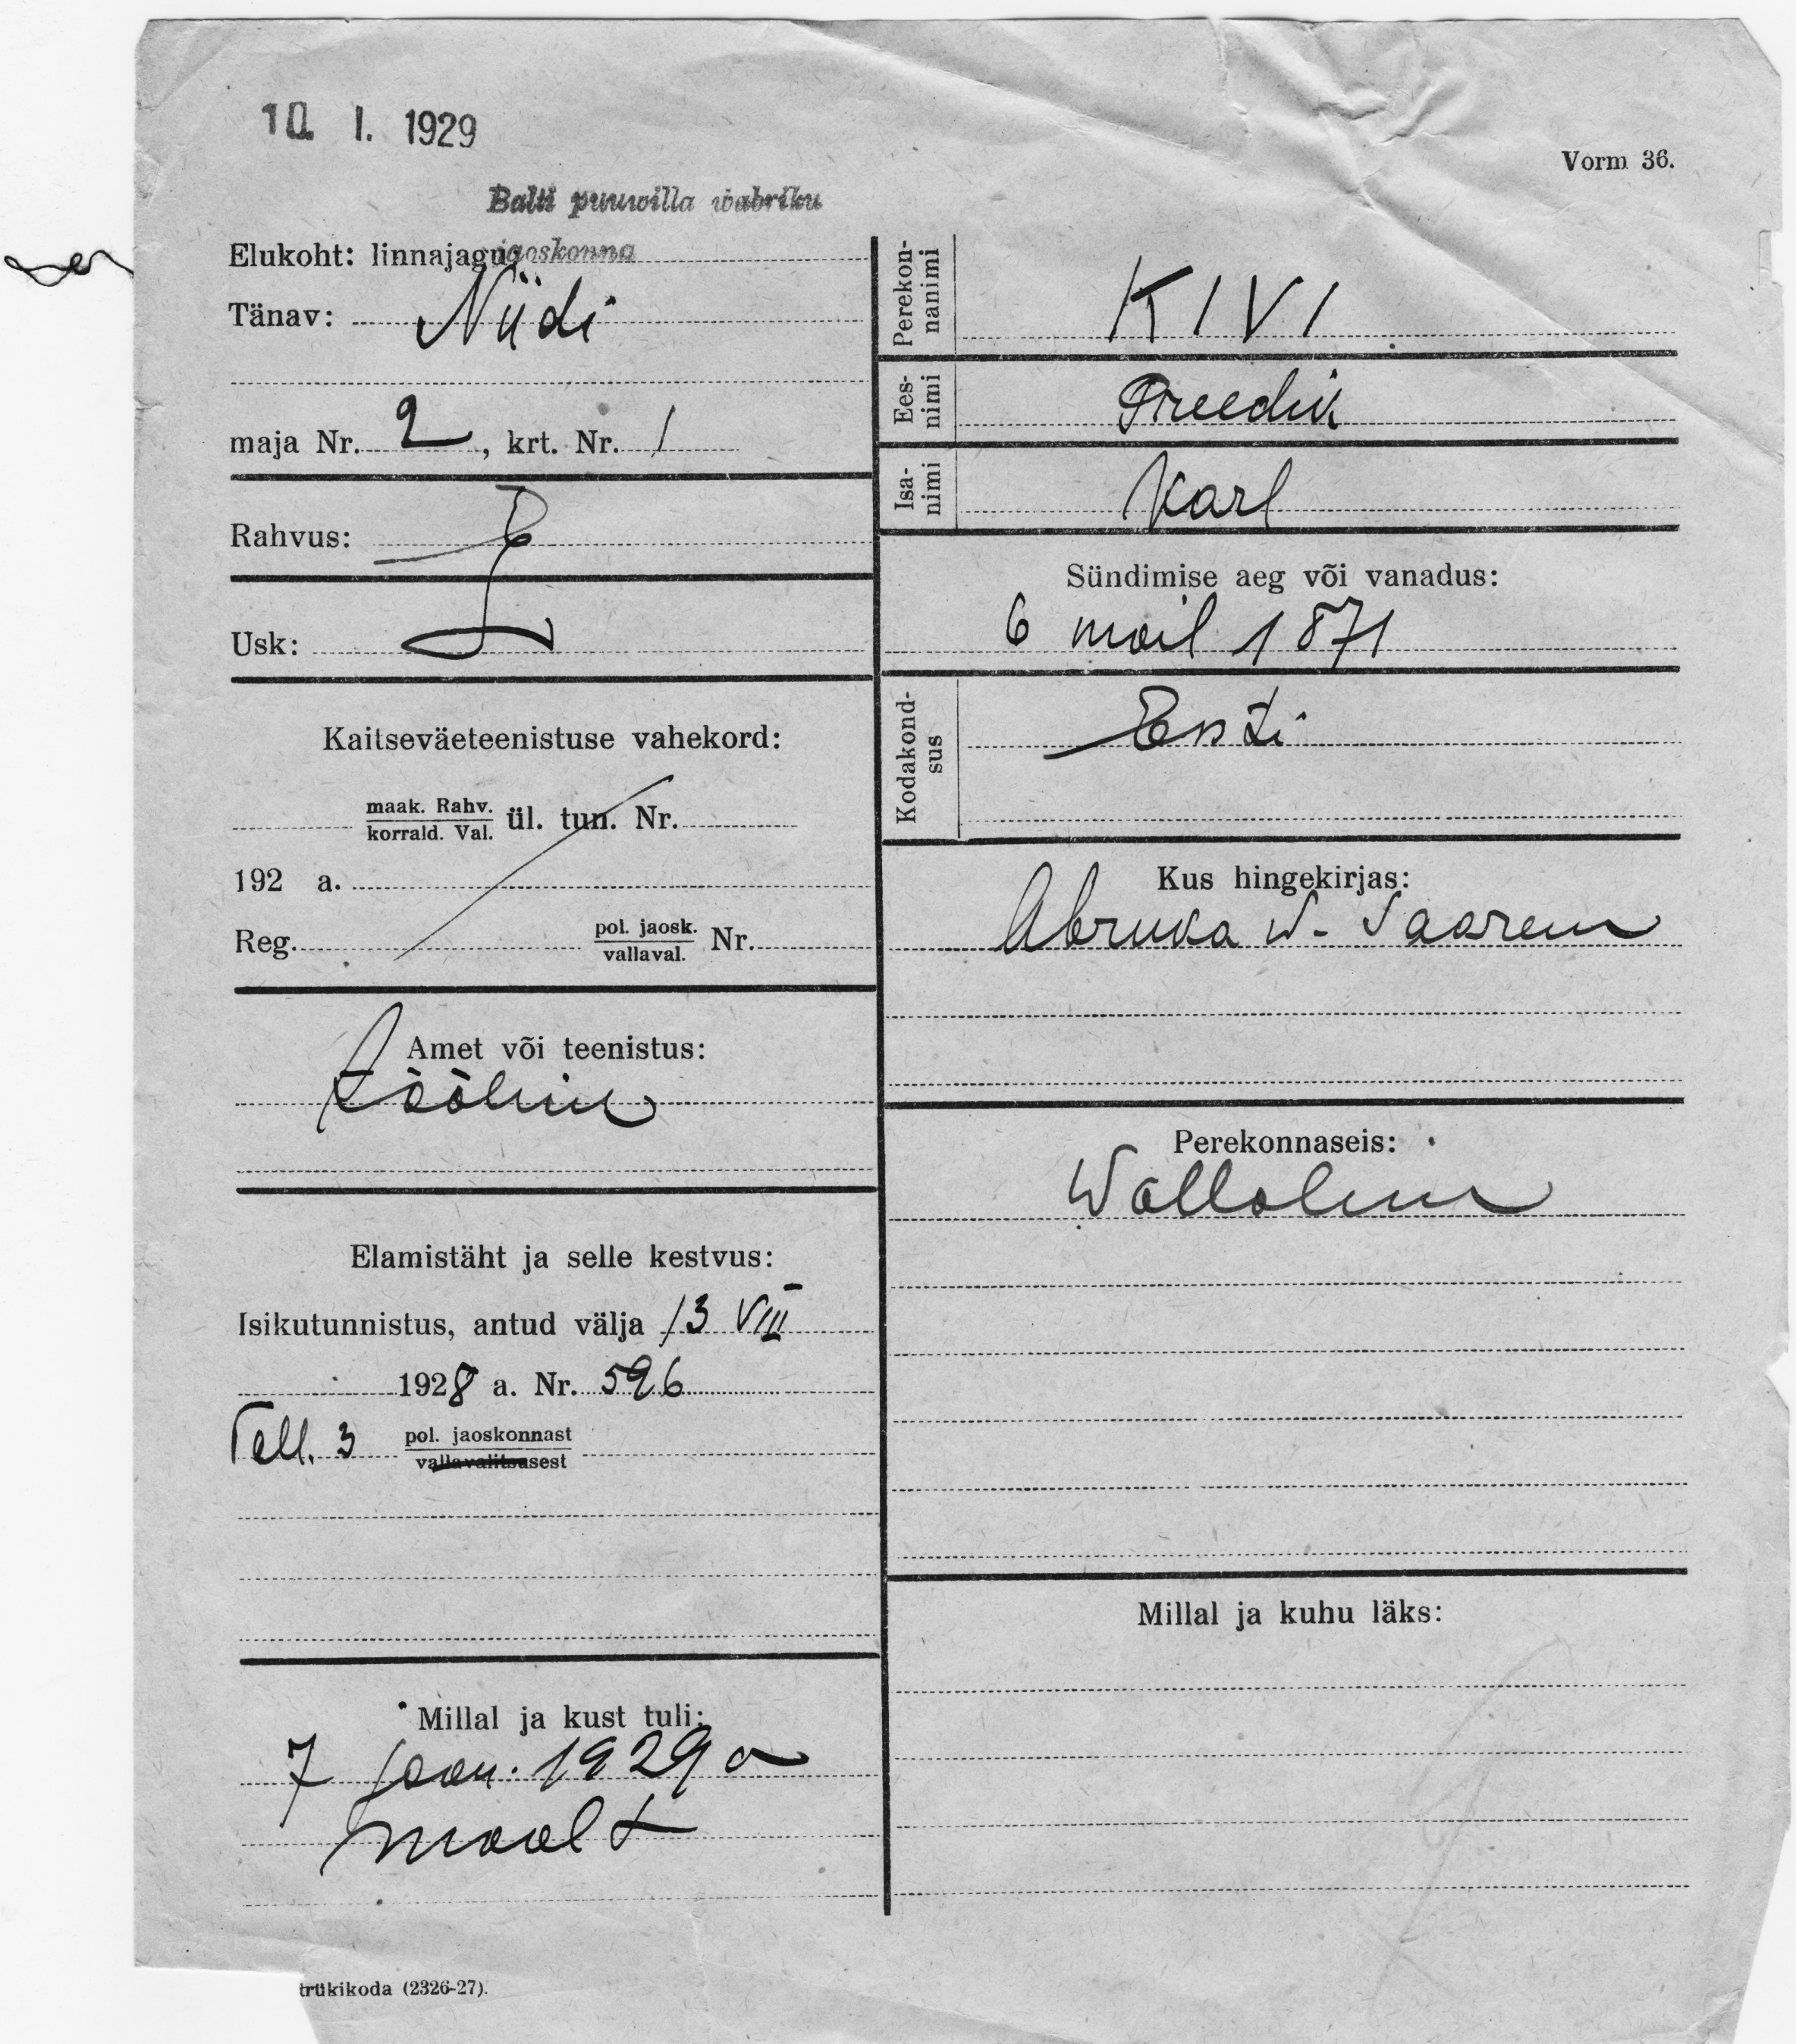 10. I. 1929
Vorm 36.
Balti puuwilla wabriku
jaoskonna
Elukoht: linnajagu
Tänav: Niidi
maja Nr. 2, krt. Nr. 1
Rahvus: E
Usk: L
Kaitseväeteenistuse vahekord:
maak. Rahv.
korrald. Val. ül. tun. Nr.
192 a.
Reg. pol. jaosk.
vallaval. Nr.
Amet või teenistus:
tööline
Elamistäht ja selle kestvus:
Isikutunnistus, antud välja 13 VIII
1928 a. Nr. 596
Tall. 3 pol. jaoskonnast
vallavalitsusest
Millal ja kust tuli:
7 jaan. 1929 a
maalt
trükikoda (2326-27).
Perekon-
nanimi KIVI
Ees-
nimi Preedik
Isa-
nimi Karl
Sündimise aeg või vanadus:
6 mail 1871
Kodakond-
sus Esti
Kus hingekirjas:
Abruka w. Saarem
Perekonnaseis:
Wallaline
Millal ja kuhu läks: